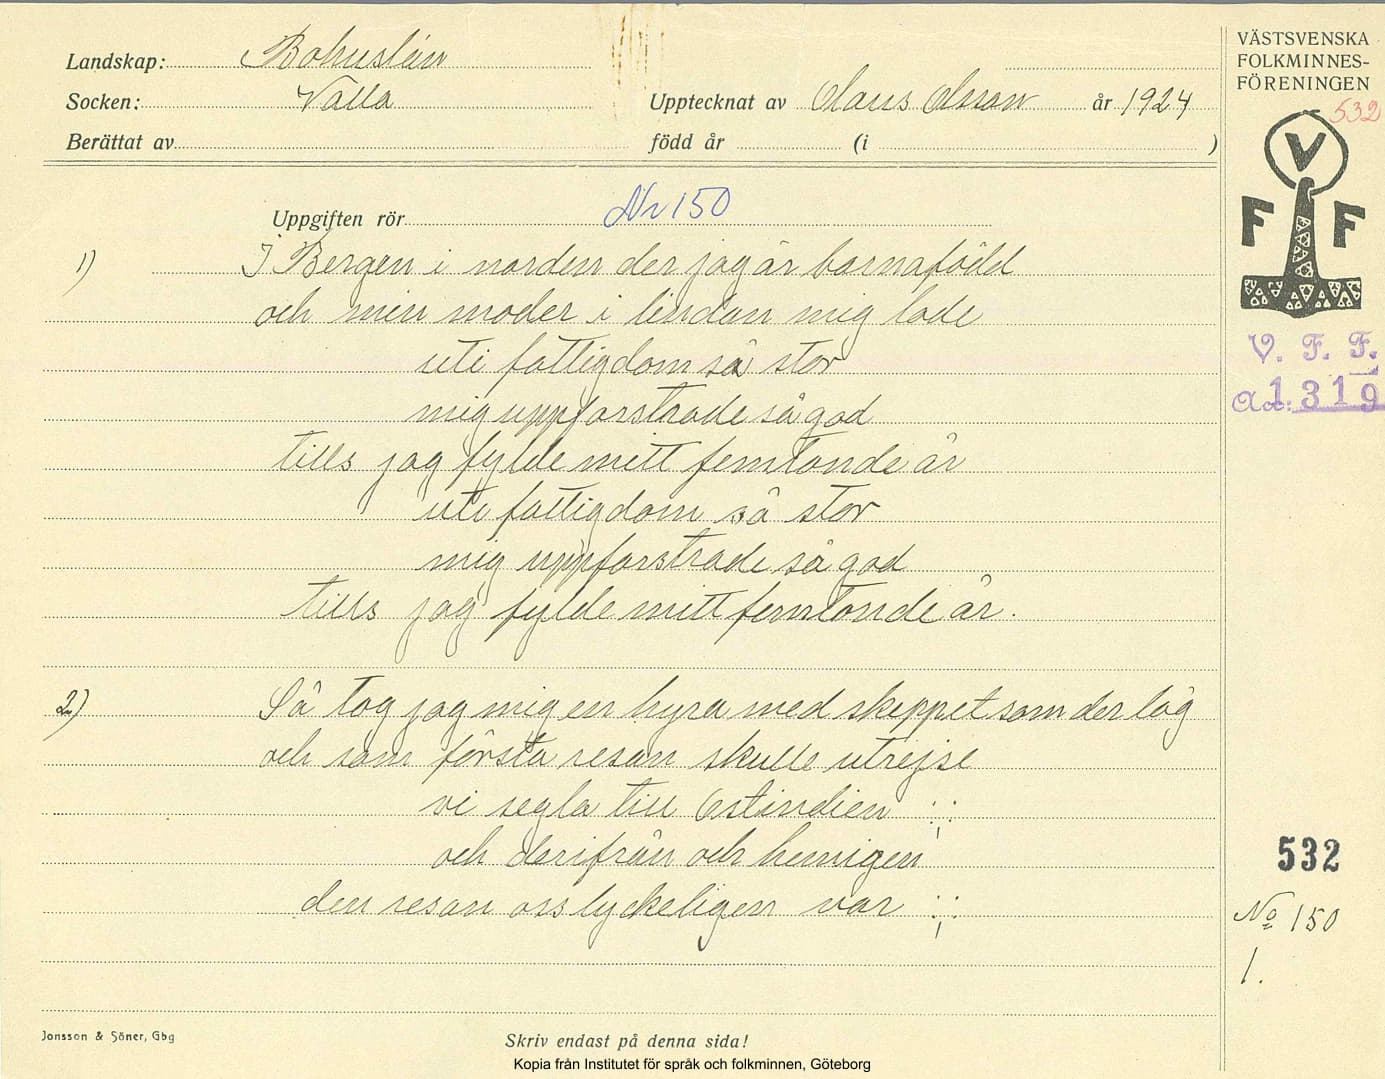 Landskap: Bohuslän
Socken: Valla
Upptecknat av Olaus Olsson år 1924
Berättat av
född år (i )
VÄSTSVENSKA
FOLKMINNES-
FÖRENINGEN
532
V
F F
V. F. F.
Acc: 1319
Uppgiften rör Nr 150
1) I Bergen i norden der jag är barnafödd
och min moder i lindan mig lade
uti fattigdom så stor
mig uppforstrade så god
tills jag fylde mitt femtonde år
uti fattigdom så stor
mig uppforstrade så god
tills jag fylde mitt femtonde år.
2) Så tog jag mig en hyra med skeppet som der låg
och som första resan skulle utrejse
vi segla till Ostindien ;;
och derifrån och hemigen
den resan oss lyckeligen var ;;
532
No 150
1.
Jonsson & Söner, Gbg
Skriv endast på denna sida!
Kopia från Institutet för språk och folkminnen, Göteborg